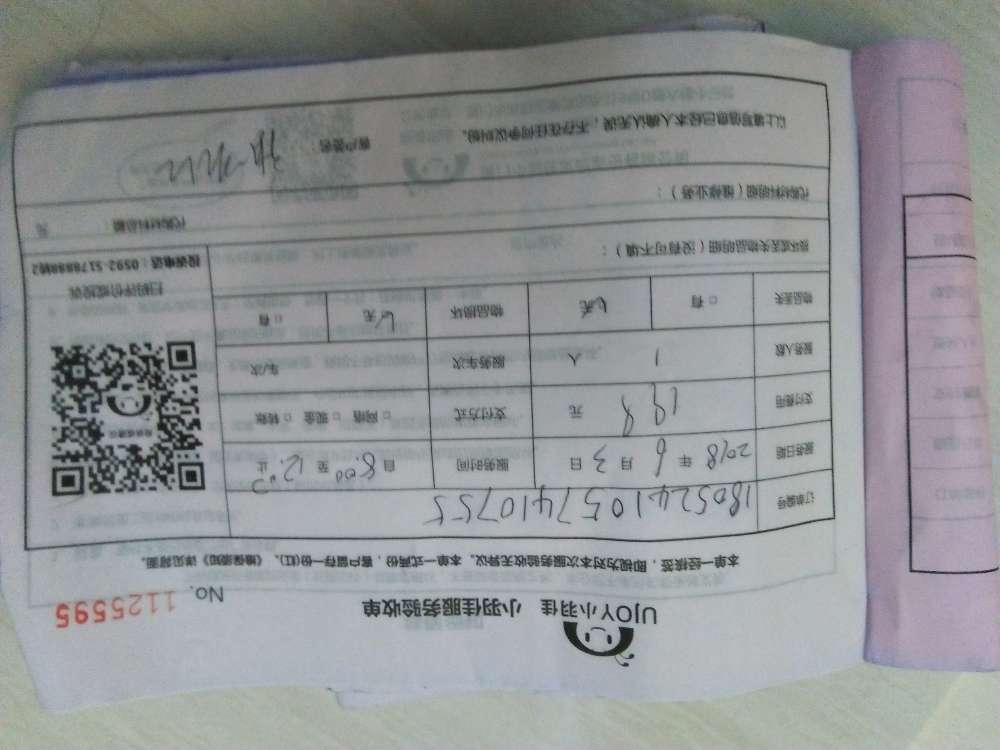 UJOY小羽佳 小羽佳服务验收单 No. 1125595
本单一经核签，即视为对本次服务验收无异议。本单一式两份，客户留存一份(红)，《维保须知》详见背面。
订单编号 180524105741075
服务日期 2018 年 6 月 3 日 服务时间 自 8:00 至 12:00 止
支付费用 199 元 支付方式 □ 网络 □ 现金 □ 转账
服务人数 1 人 服务车次 车/次
物品丢失 □ 有 □ 无 物品损坏 □ 无 □ 有
损坏或丢失物品明细（没有可不填）：
扫码评价或投诉
投诉电话：0592-5178888转2
代购材料明细（维修业务）：
代购材料总额： 元
以上填写信息已经本人确认无误，不存在任何争议纠纷。
客户签名：